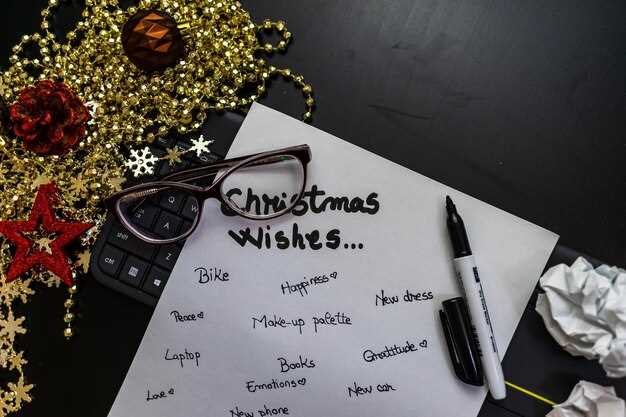 Christmas
Wishes...
Bike
Happiness♡
New dress
Peace♡
Make-up palette
Laptop
Books
Gratitude♡
Love♡
Emotions♡
New car
New phone
shift
ctrl